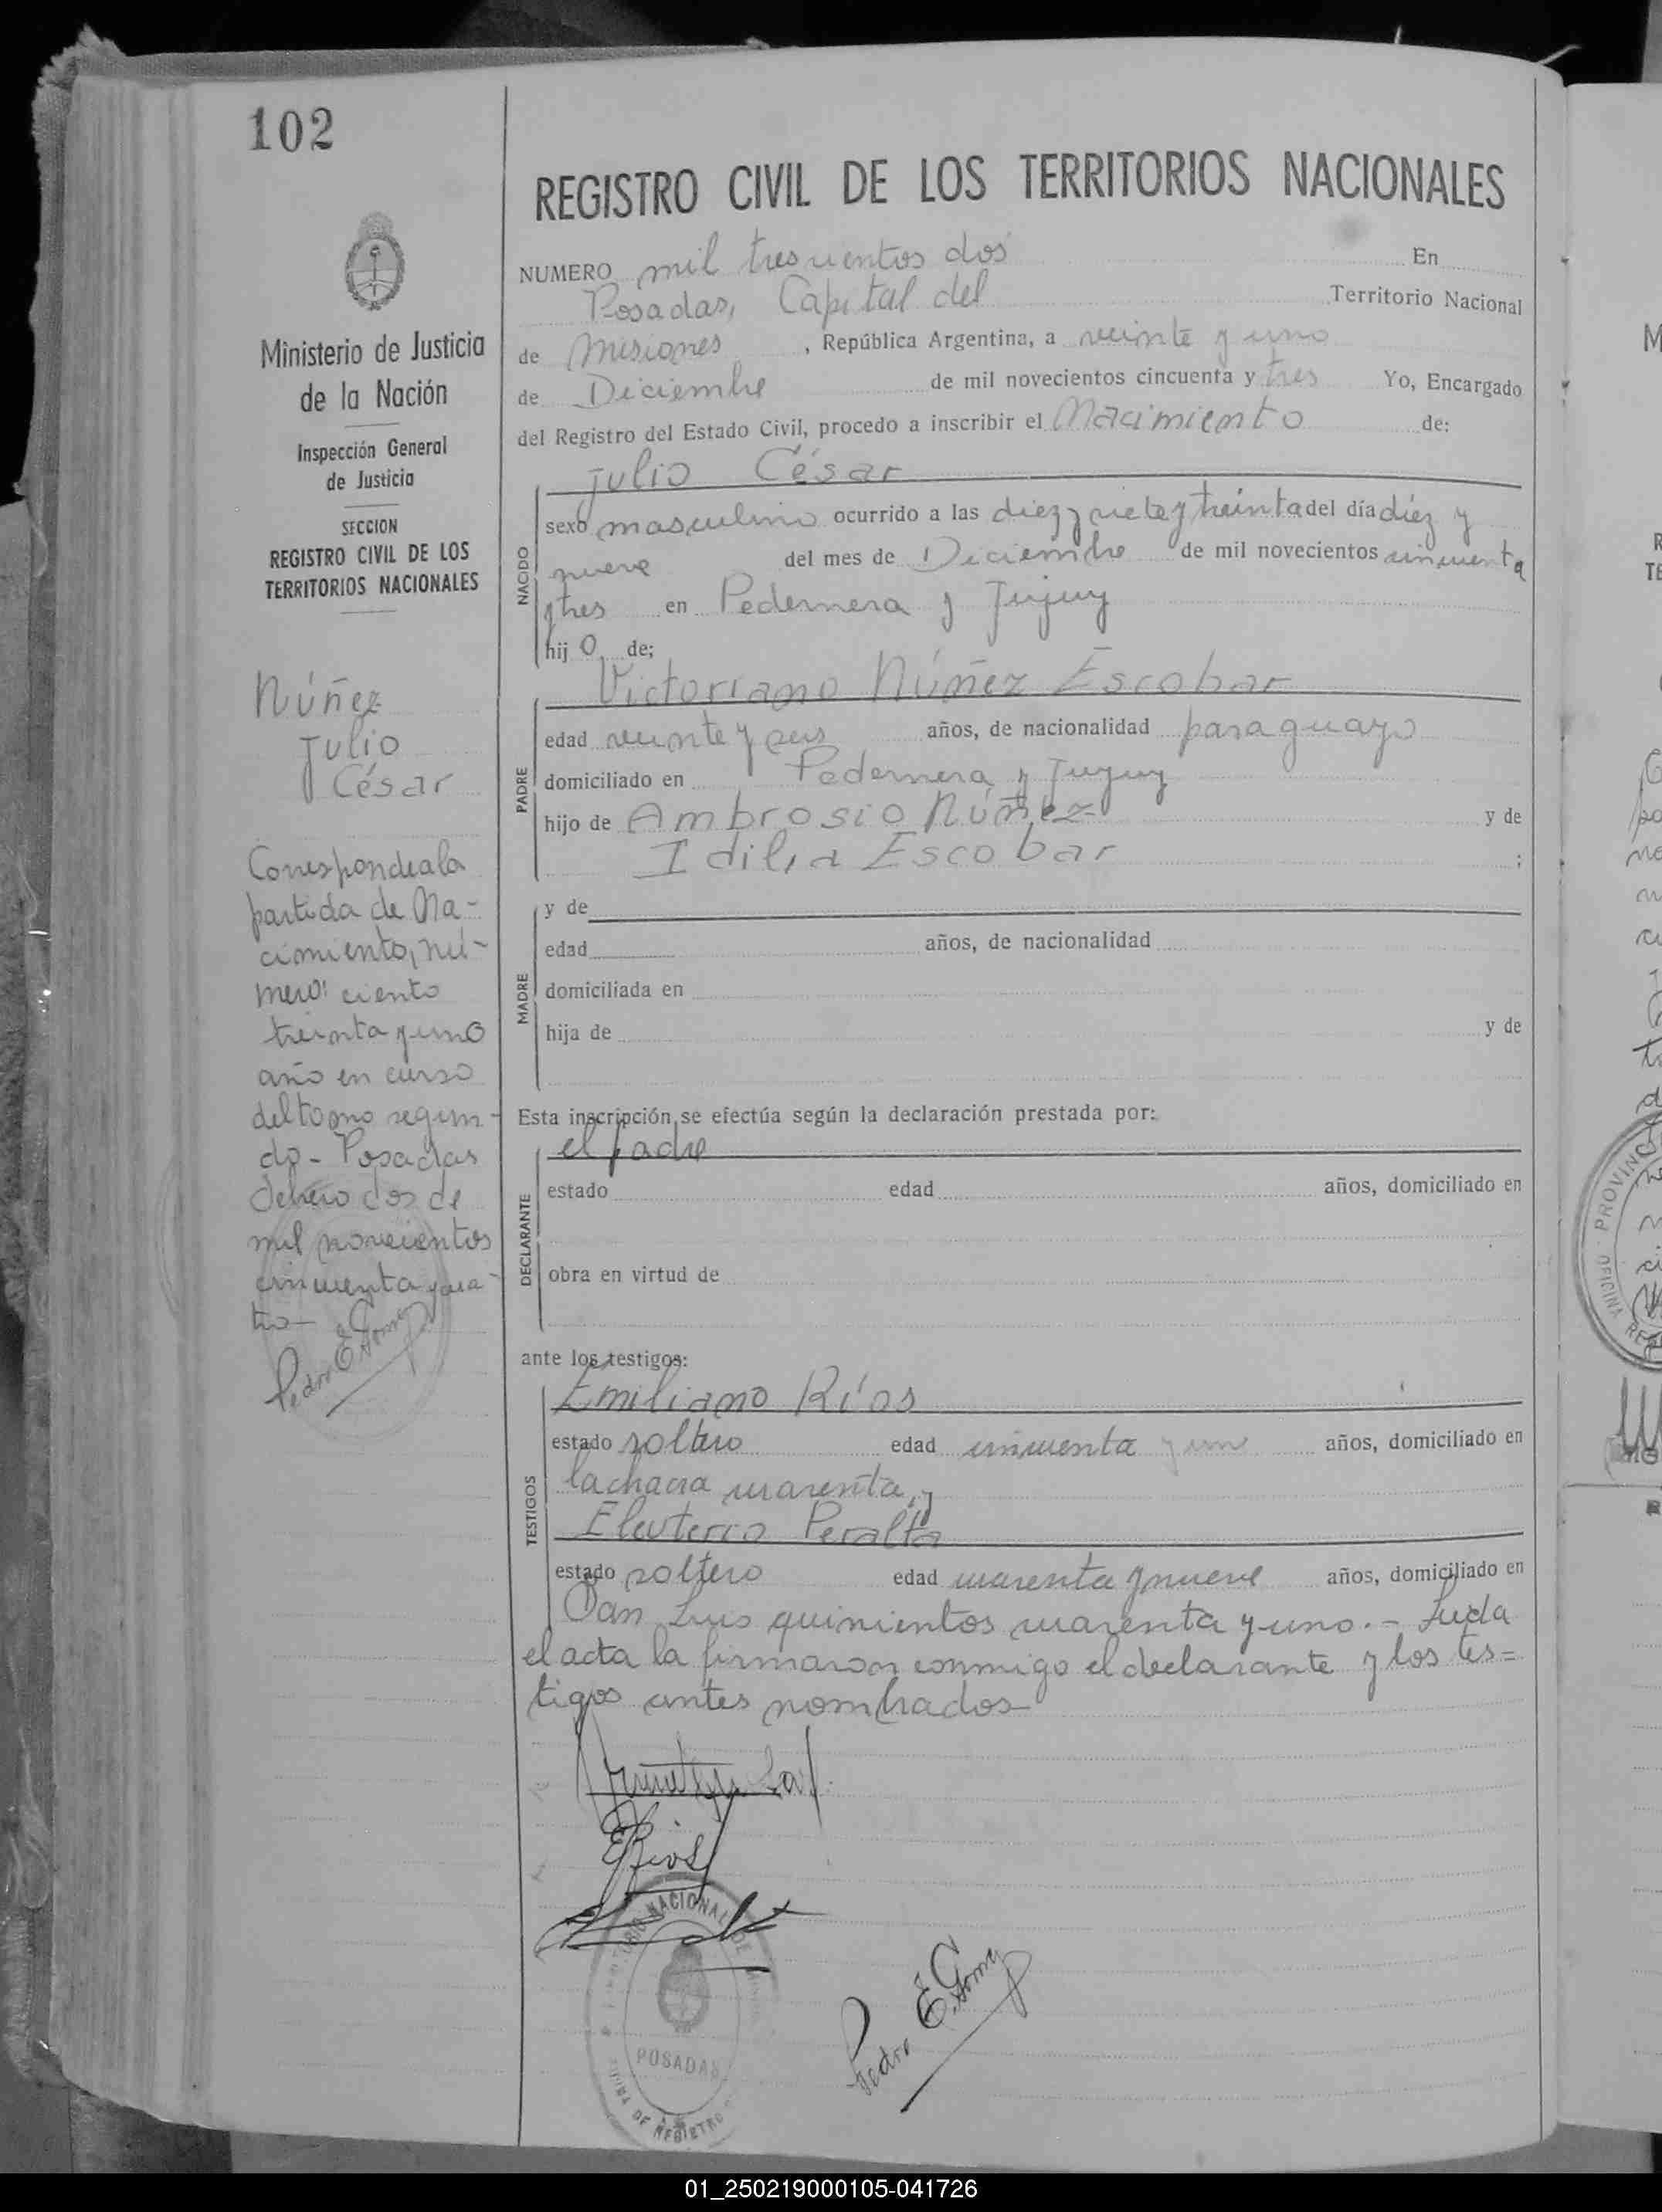 102
Ministerio de Justicia
de la Nación
Inspección General
de Justicia
SECCION
REGISTRO CIVIL DE LOS
TERRITORIOS NACIONALES
Núñez
Julio
César
Corresponde a la
partida de Na-
cimiento, nú-
mero: ciento
treinta y uno
año en curso
del tomo segun-
do - Posadas
Enero dos de
mil novecientos
cincuenta y cua-
tro -
Pedro E. Gomez
REGISTRO CIVIL DE LOS TERRITORIOS NACIONALES
NUMERO mil trescientos dos En
Posadas, Capital del Territorio Nacional
de Misiones, República Argentina, a veinte y uno
de Diciembre de mil novecientos cincuenta y tres Yo, Encargado
del Registro del Estado Civil, procedo a inscribir el Nacimiento de:
Julio César
NACIDO
sexo masculino ocurrido a las diez y siete y treinta del día diez y
nueve del mes de Diciembre de mil novecientos cincuenta
y tres en Pedernera y Jujuy
hijo de;
Victoriano Núñez Escobar
PADRE
edad veinte y seis años, de nacionalidad paraguayo
domiciliado en Pedernera y Jujuy
hijo de Ambrosio Núñez y de
Idilia Escobar ;
MADRE
y de
edad años, de nacionalidad
domiciliada en
hija de y de
Esta inscripción se efectúa según la declaración prestada por:
el padre
DECLARANTE
estado edad años, domiciliado en
obra en virtud de
ante los testigos:
Emiliano Ríos
TESTIGOS
estado soltero edad cincuenta y un años, domiciliado en
la chacra cuarenta, y
Eleuterio Peralta
estado soltero edad cuarenta y nueve años, domiciliado en
San Luis quinientos cuarenta y uno. - Leída
el acta la firmaron conmigo el declarante y los tes=
tigos antes nombrados -
ERios
NACIONAL DE
POSADAS
OFICINA DE REGISTRO
Pedro E. Gomez
PROVINCIA
OFICINA
01_250219000105-041726